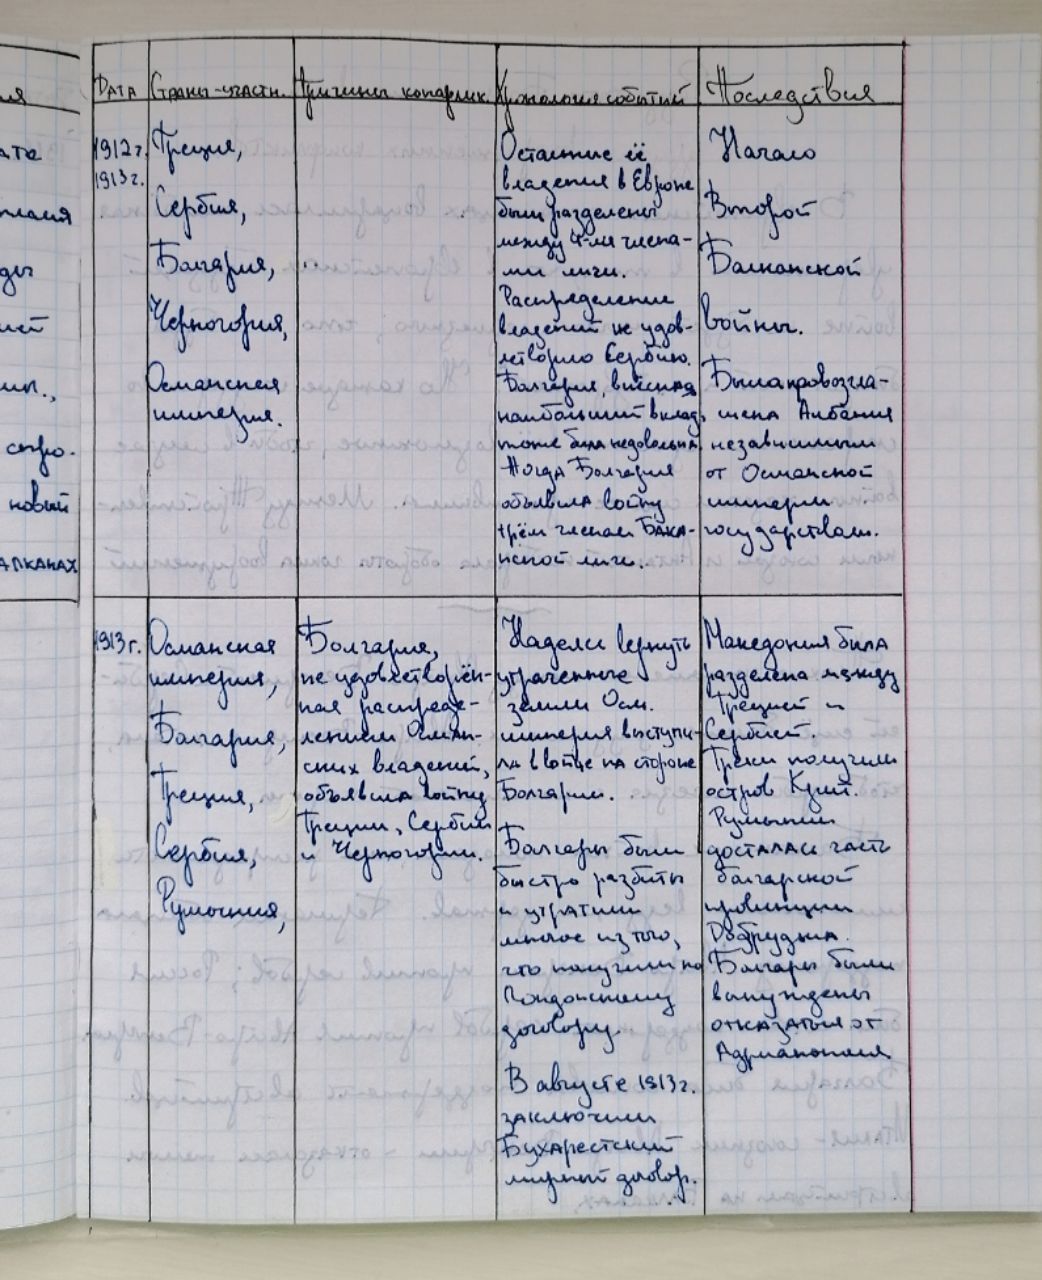 ия
ата
ды
ип.,
новый
АЛКАНАХ
Дата
Страны-участн.
Причины конфлик.
Хронология событий
Последствия
1912г.
1913г.
Греция,
Сербия,
Болгария,
Черногория,
Османская
империя.
Остальные её
владения в Европе
были разделены
между 4-мя члена-
ми лиги.
Распределение
владений не удов-
летворило Сербию.
Болгария, внёсшая
наибольший вклад,
тоже была недовольна.
Тогда Болгария
объявила войну
трём членам Бака-
нской лиги.
Начало
Второй
Балканской
войны.
Была провозгла-
шена Албания
независимым
от Османской
империи
государством.
1913г.
Османская
империя,
Болгария,
Греция,
Сербия,
Румыния,
Болгария,
не удовлетворён-
ная распреде-
лением Осман-
ских владений,
объявила войну
Греции, Сербии
и Черногории.
Надеясь вернуть
утраченные
земли Осм.
империя выступи-
ла в войне на стороне
Болгарии.
Болгары были
быстро разбиты
и утратили
многое из того,
что получили по
Лондонскому
договору.
В августе 1913г.
заключили
Бухарестский
мирный договор.
Македония была
разделена между
Грецией и
Сербией.
Греки получили
остров Крит.
Румынии
досталась часть
болгарской
провинции
Добруджа.
Болгары были
вынуждены
отказаться от
Адрианополя